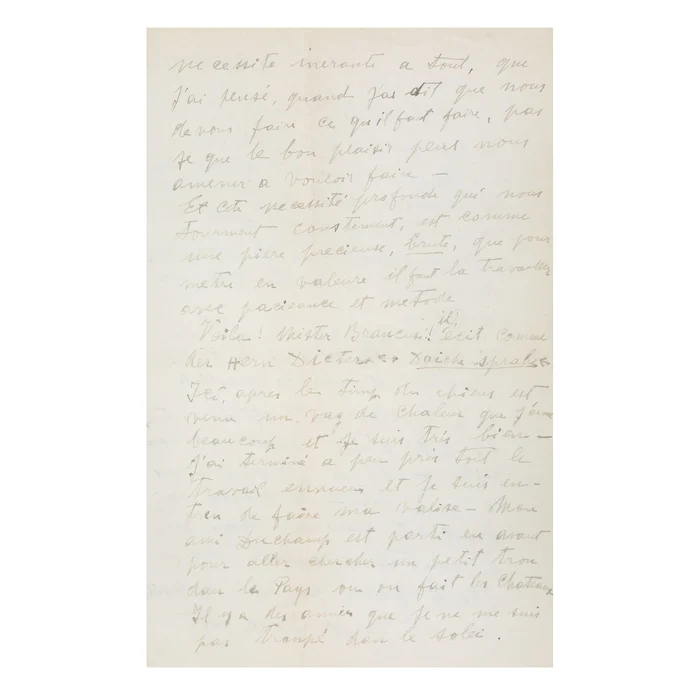 necessite inerante a tout, que
j'ai pensé, quand j'ai dit que nous
devons faire ce qu'il faut faire, pas
se que le bon plaisir peut nous
amener a vouloir faire —
Et cete necessité profonde qui nous
tourment constement, est comme
une piere precieuse, brute, que pour
metre en valeure il faut la travailler
avec pacieance et metode
Voila! Mister Brancusi! il écit comme
der Hern Dicterss Daiche sprake
Ici, apres le timp du chiens est
venu un vag de chaleur que j'ème
beaucoup et je suis très bien —
J'ai terminé a peu près tout le
travail ennuen et je suis en-
tren de faire ma valise — Mon
ami Duchamp est parti en avant
pour aller chercher un petit trou
dan le Pays ou on fait les Chateaux
Il y a des amies que je ne me suis
pas trompé dan le solei.